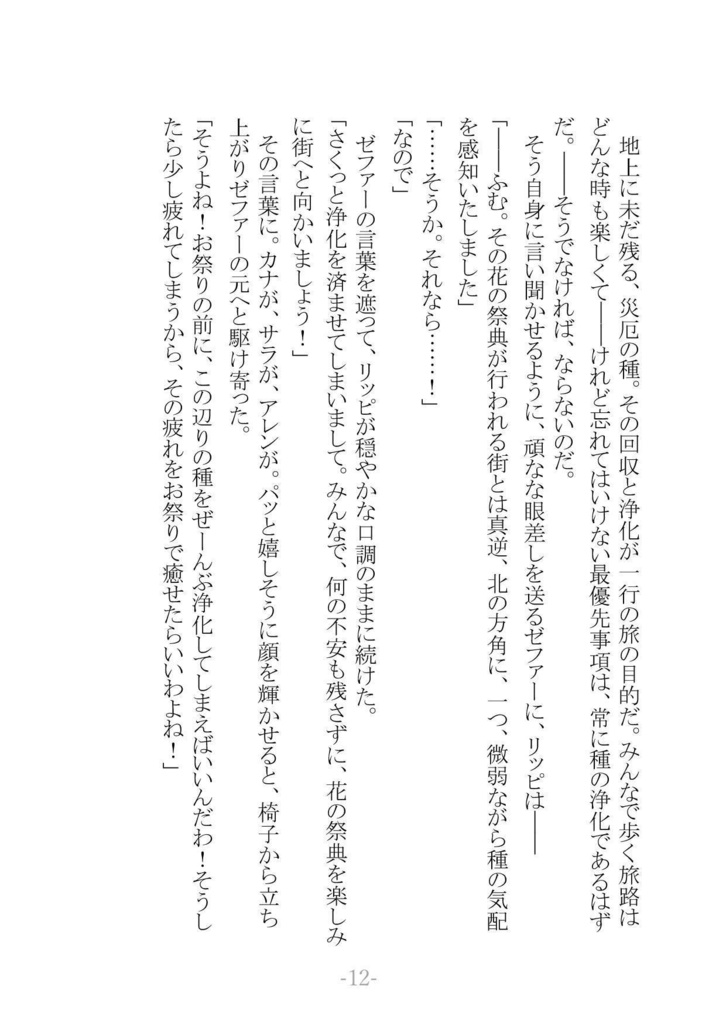 地上に未だ残る、災厄の種。その回収と浄化が一行の旅の目的だ。みんなで歩く旅路は
どんな時も楽しくて――けれど忘れてはいけない最優先事項は、常に種の浄化であるはず
だ。――そうでなければ、ならないのだ。
そう自身に言い聞かせるように、頑なな眼差しを送るゼファーに、リッピは――
「――ふむ。その花の祭典が行われる街とは真逆、北の方角に、一つ、微弱ながら種の気配
を感知いたしました」
「……そうか。それなら……！」
「なので」
ゼファーの言葉を遮って、リッピが穏やかな口調のままに続けた。
「さくっと浄化を済ませてしまいまして。みんなで、何の不安も残さずに、花の祭典を楽しみ
に街へと向かいましょう！」
その言葉に。カナが、サラが、アレンが。パッと嬉しそうに顔を輝かせると、椅子から立ち
上がりゼファーの元へと駆け寄った。
「そうよね！お祭りの前に、この辺りの種をぜーんぶ浄化してしまえばいいんだわ！そうし
たら少し疲れてしまうから、その疲れをお祭りで癒せたらいいわよね！」
-12-